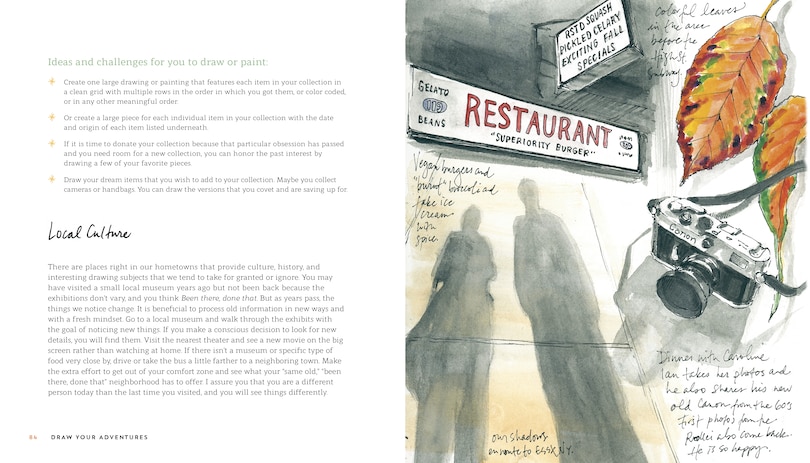 Ideas and challenges for you to draw or paint:
Create one large drawing or painting that features each item in your collection in
a clean grid with multiple rows in the order in which you got them, or color coded,
or in any other meaningful order.
Or create a large piece for each individual item in your collection with the date
and origin of each item listed underneath.
If it is time to donate your collection because that particular obsession has passed
and you need room for a new collection, you can honor the past interest by
drawing a few of your favorite pieces.
Draw your dream items that you wish to add to your collection. Maybe you collect
cameras or handbags. You can draw the versions that you covet and are saving up for.
Local Culture
There are places right in our hometowns that provide culture, history, and
interesting drawing subjects that we tend to take for granted or ignore. You may
have visited a small local museum years ago but not been back because the
exhibitions don't vary, and you think Been there, done that. But as years pass, the
things we notice change. It is beneficial to process old information in new ways and
with a fresh mindset. Go to a local museum and walk through the exhibits with
the goal of noticing new things. If you make a conscious decision to look for new
details, you will find them. Visit the nearest theater and see a new movie on the big
screen rather than watching at home. If there isn't a museum or specific type of
food very close by, drive or take the bus a little farther to a neighboring town. Make
the extra effort to get out of your comfort zone and see what your "same old," "been
there, done that" neighborhood has to offer. I assure you that you are a different
person today than the last time you visited, and you will see things differently.
84 DRAW YOUR ADVENTURES
RSTD SQUASH
PICKLED CELARY
EXCITING FALL
SPECIALS
GELATO
BEANS
RESTAURANT
"SUPERIORITY BURGER"
colorful leaves
in the area
before the
highest
Vegan burgers and
"burnt" broccoli ad
fake ice
cream
with
spice
Canon
our shadows
en route to Essex, NY.
Dinner with Caroline
Ian takes her photos and
he also shares his new
old Canon from the 60's
First photos from the
Rollei also come back.
He is so happy.